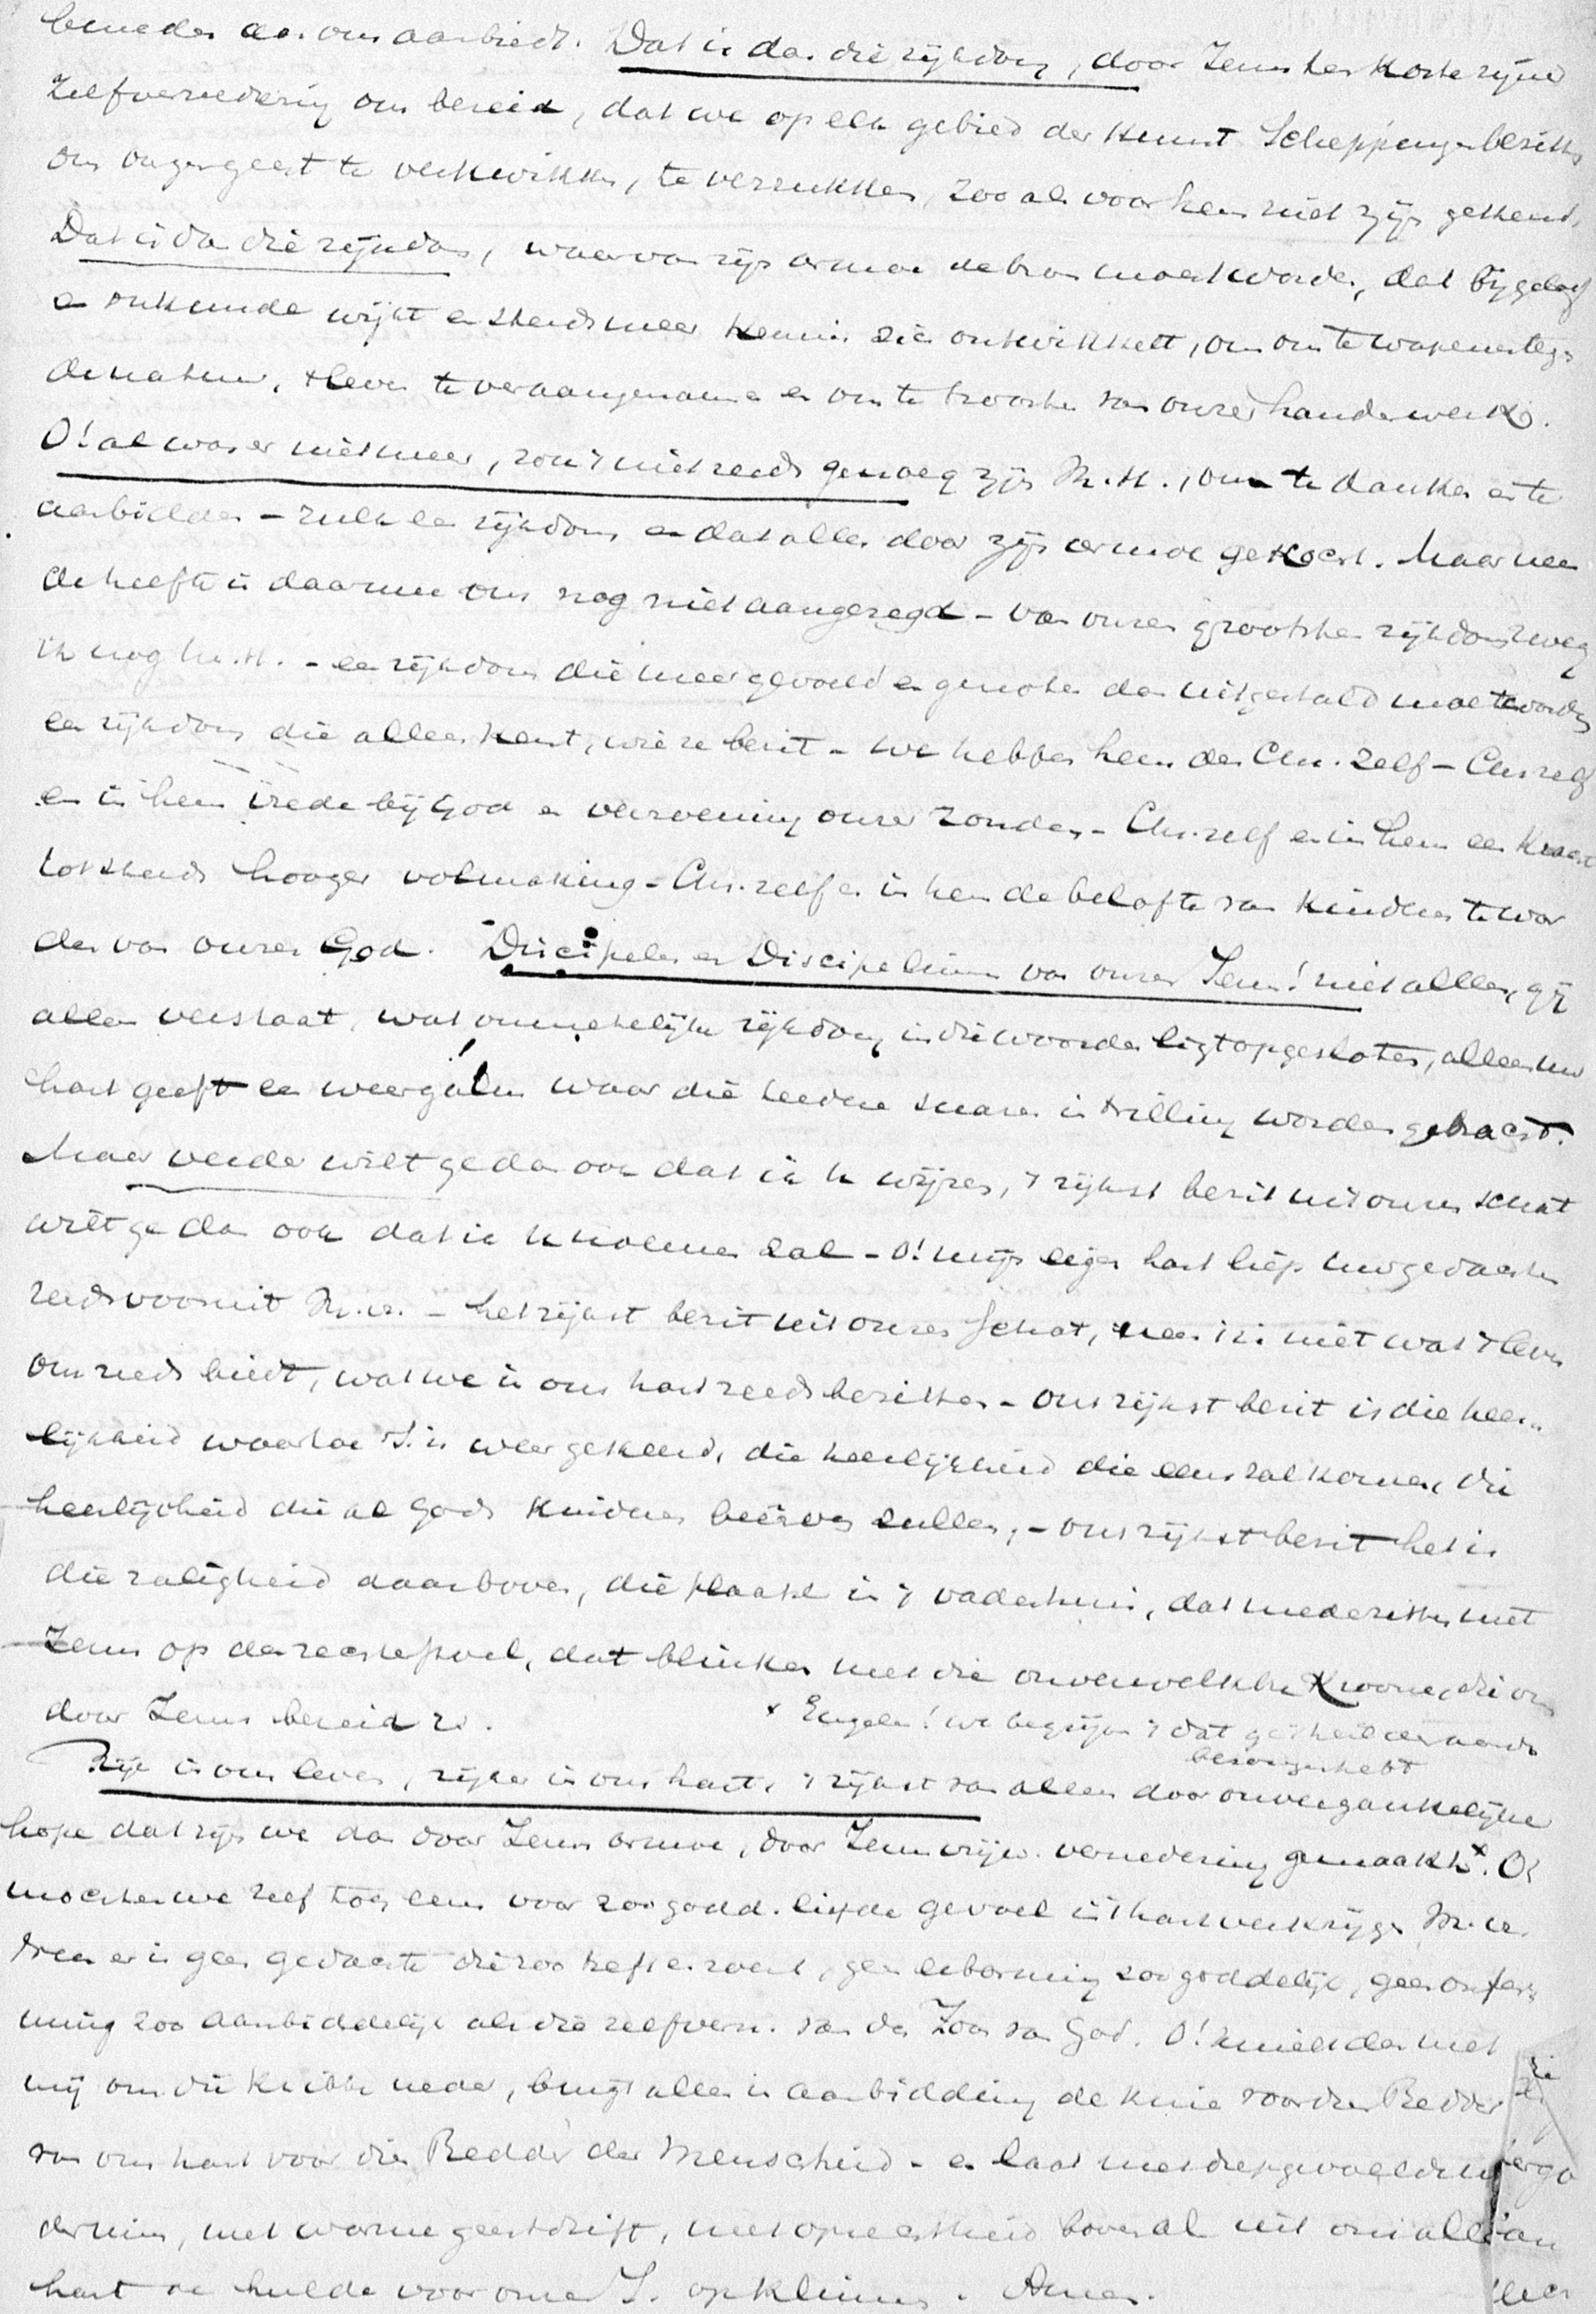 beneden aan ons aanbiedt. Dat is dan die rijkdom, door Jezus ten koste zijner
Zelfvernedering ons bereid, dat we op elk gebied der kunst Scheppingen bezitten
om onzen geest te verkwikken, te verrukken, zoo als voorheen niet zijn gekend.
Dat is dan die rijkdom, waarvan zijn armoe de bron moest worden, dat bijgeloof
en onkunde wijkt en steeds meer kennis zich ontwikkelt, om ons te wapenen tegen
de natuur, 't leven te veraangenamen en ons te troosten van onzer handen werk.
O! al was er niet meer, zou 't niet reeds genoeg zijn M. H., om te danken en te
aanbidden – zulk een rijkdom, en dat alles door zijn armoe gekocht. Maar neen
de helft is daarmee ons nog niet aangezegd – van onzen grootsten rijkdom zweeg
ik nog M. H. – een rijkdom die meer gevoeld en genoten dan uitgestald moet worden
een rijkdom die alleen kent, wie ze bezit – we hebben hem den Chr. zelf – Chr. zelf
en in hem vrede bij God en verzoening onzer zonden – Chr. zelf en in hem een kracht
tot steeds hooger volmaking – Chr. zelf en in hem de belofte van kinderen te wor
den van onzen God. Discipelen en Discipelinnen van onzen Jezus! niet allen, gij
alleen verstaat, wat onmetelijke rijkdom in die woorden ligt opgesloten, alleen uw
hart geeft een weergalm waar die teedere snaren in trilling worden gebracht.
Maar verder wilt ge dan ook dat ik u wijzen, 't rijkst bezit uit onzen schat
wilt ge dan ook dat ik u noemen zal – O! mijn eigen hart liep uw gedachten
reeds vooruit M. V. – het rijkst bezit uit onzen schat, neen 't is niet wat 't leven
ons reeds biedt, wat we in ons hart reeds bezitten – ons rijkst bezit is die heer-
lijkheid waartoe J. is weergekeerd, die heerlijkheid die eens zal komen, die
heerlijkheid die al Gods kinderen beërven zullen, – ons rijkst bezit het is
die zaligheid daarboven, die plaats in 't vaderhuis, dat mede zitten met
Jezus op den rechterstoel, dat blinken met die onverwelkbre Kroone, die ons
door Jezus bereid is.
× Engelen! we begrijpen 't dat ge 't heil der aarde
bezongen hebt
Rijk is ons leven, rijker is ons hart, 't rijkst van allen door onvergankelijke
hope dat zijn we dan door Jezus armoe, door Jezus vrijw. vernedering gemaakt ×. Och
mochten we zelf toch eens voor zoo godd. liefde gevoel in 't hart verkrijgen M. V.
Neen er is geen gedachte die zoo treft en roert, geen erbarming zoo goddelijk, geen ontfer-
ming zoo aanbiddelijk als die zelfvern. van den Zoon van God. O! knielt dan met
mij om die kribbe neder, buigt allen in aanbidding de knie voor den Redder
van ons hart voor dien Redder der Menscheid – en laat met diepgevoelden
met warme geestdrift, met oprechtheid bovenal uit ons aller
hart de hulde voor onzen J. opklimmen. Amen.